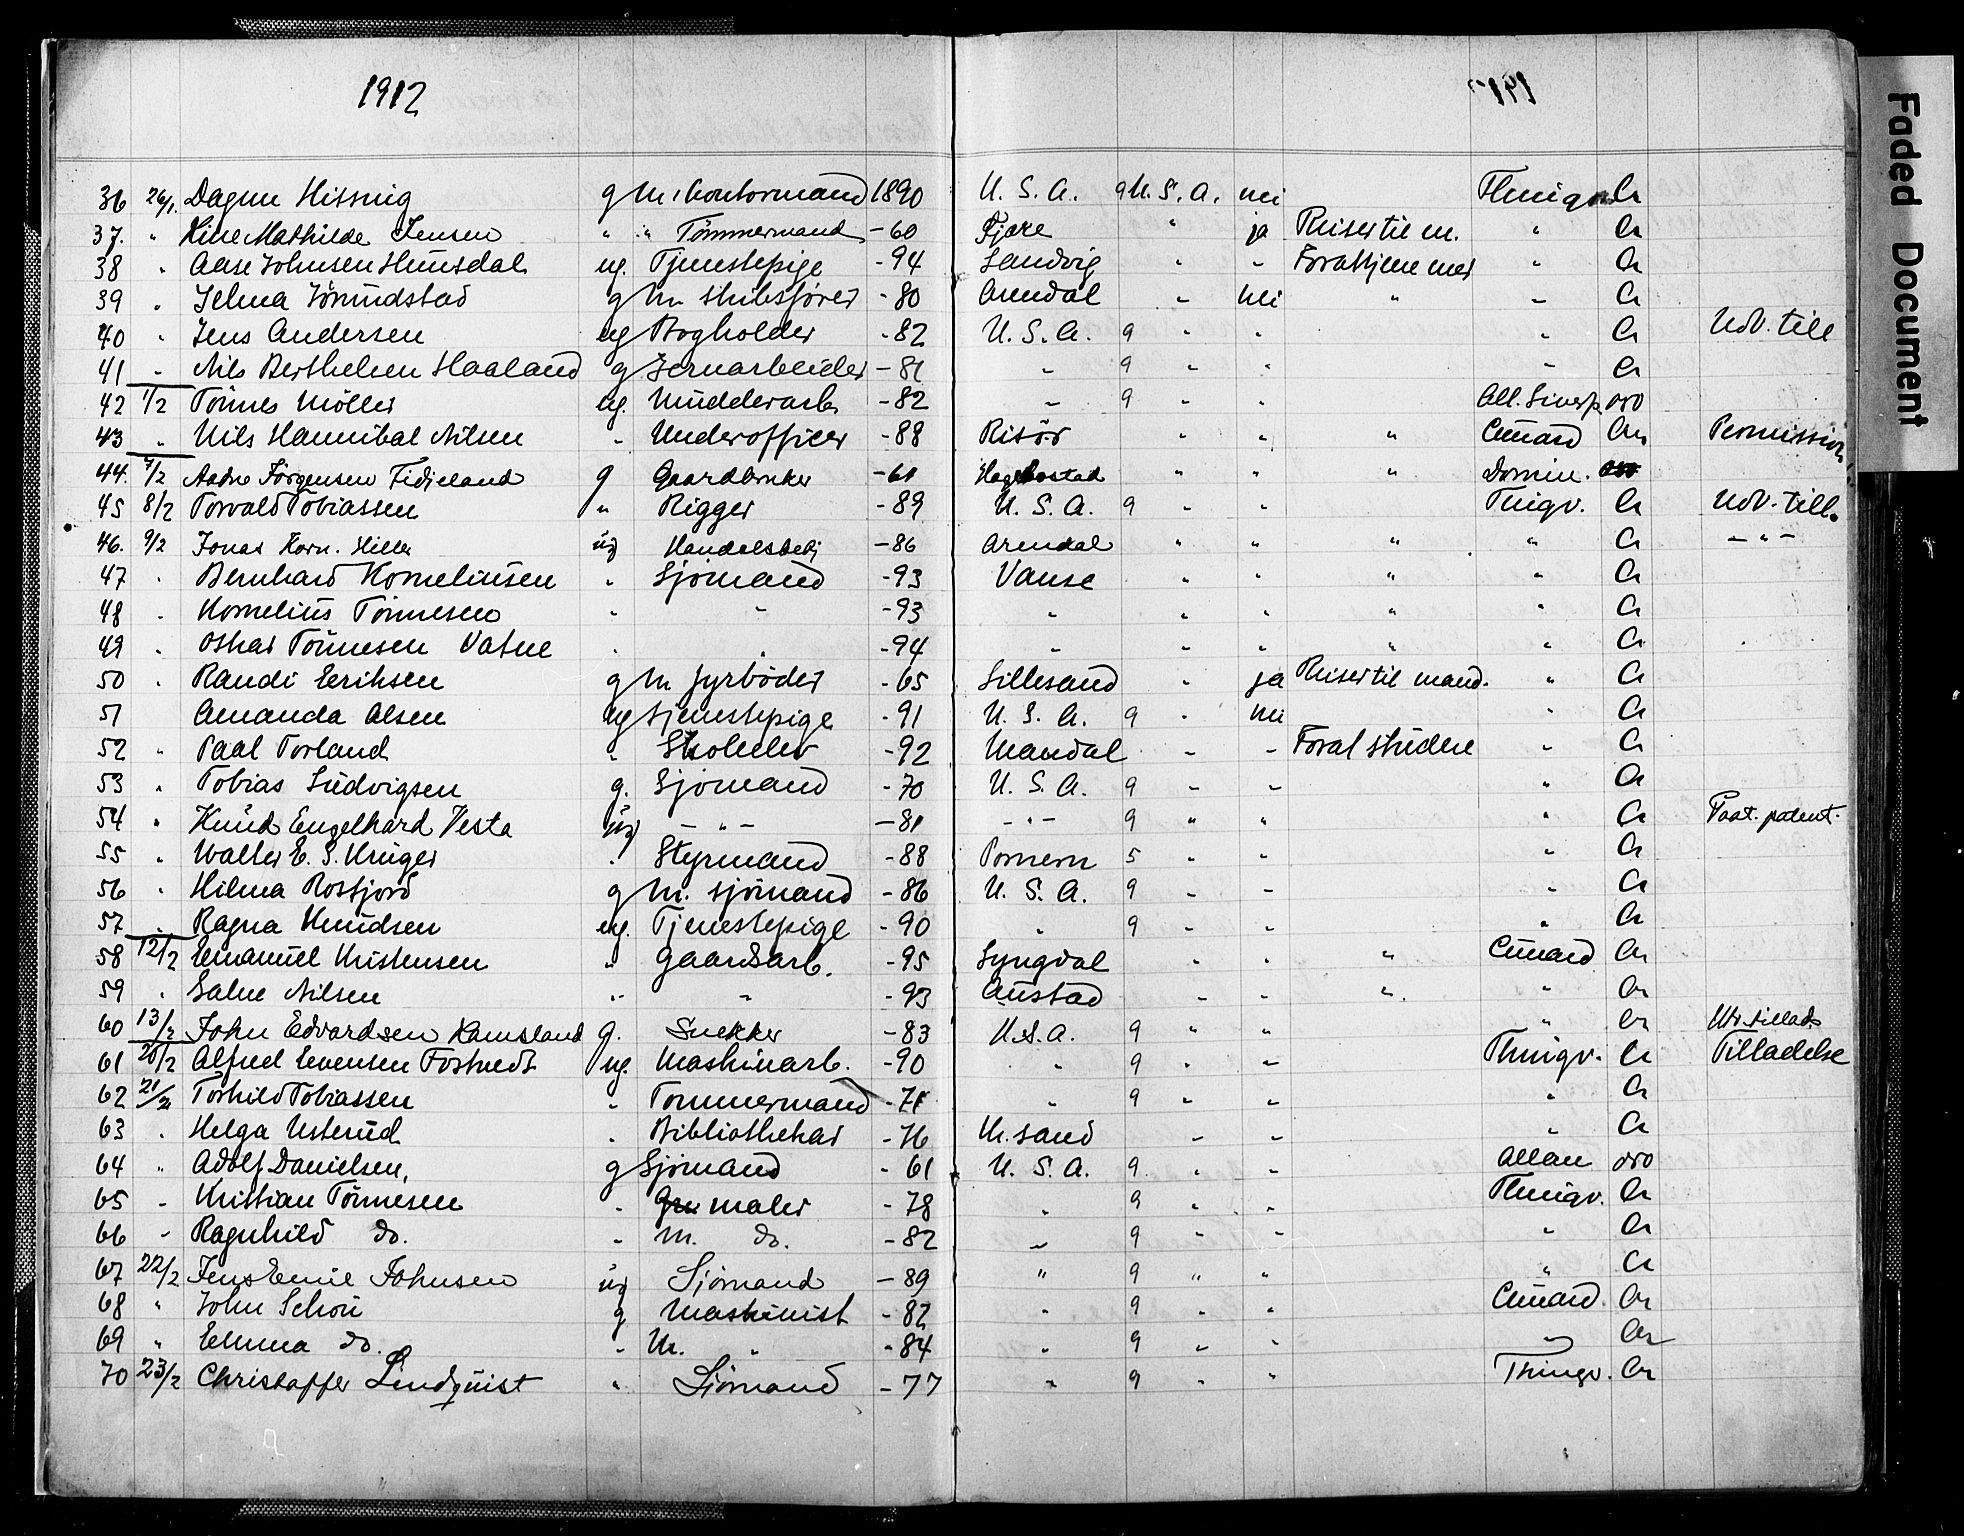 1912
36 26/1. Dagne Hissnig g m. Kontormand 1890 U. S. A. 9 U. S. A. nei Thingv Cr
37. " Line Mathilde Jensen " " Tömmermand -60 Fjære " ja Reiser til m. " Cr
38 " Aase Johnsen Hunsdal ug. Tjenestepige -94 Landvig " " Foratjene mer " Cr
39 " Selma Jörundstad g m. Skibsförer -80 Arendal " nei " " Cr
40 " Jens Andersen ug Bogholder -82 U. S. A. 9 " " " Cr Udv. till
41 " Nils Berthelsen Haaland g Jernarbeider -81 " 9 " " " Cr
42 1/2 Tönnes Möller ug. Mudderarb. -82 " 9 " " All. Liverp. oro
43 " Nils Hannibal Nilsen " Underofficer -88 Risör " " " Cunard Cr Permission
44. 7/2 Aadne Jörgensen Fidjeland g Gaardbruker -61 Hægebostad " " " Domin.
45 8/2 Torvald Tobiassen " Rigger -89 U. S. A. 9 " " Tingv. Cr Udv. till.
46. 9/2 Jonas Korn. Hille ug Handelsbetj -86 Arendal " " " " Cr - " -
47 " Bernhard Korneliusen " Sjömand -93 Vanse " " " " Cr
48 " Kornelius Tönnesen " " -93 " " " " " Cr
49 " Oskar Tönnesen Vatne " " -94 " " " " " Cr
50 " Randi Eriksen g m fyrböder -65 Lillesand " ja Reiser til mand. " Cr
51 Amanda Olsen ug tjenestepige -91 U. S. A. 9 " nei " Cr
52 " Paal Torland " Skoleelev -92 Mandal " " Forat studere " Cr
53 " Tobias Ludvigsen g. Sjömand -70 U. S. A. 9 " " " Cr
54 " Knud Engelhard Vesta ug - " - -81 - " - 9 " " " Cr Paat. patent.
55 " Walter E. S. Krüger " Styrmand -88 Pomern 5 " " " Cr
56 " Hilma Rosfjord g m. sjömand -86 U. S. A. 9 " " " Cr
57 " Ragna Knudsen ug. Tjenestepige -90 " 9 " " " Cr
58 12/2 Emanuel Kristensen " Gaardsarb. -95 Lyngdal " " " Cunard Cr
59 " Salve Nilsen " " -93 Austad " " " " Cr
60 13/2 John Edvardsen Ramsland g. Snekker -83 U.S.A. 9 " " " Cr Utv. tillads
61 20/2 Alfred Evensen Fostvedt ug. Maskinarb. -90 " 9 " " Thingv. Cr Tilladelse
62 21/2 Torhild Tobiassen " Tommermand -71 " 9 " " " Cr
63 " Helga Usterud " Bibliothekar -76 Kr. sand " " " Cr
64 " Adolf Danielsen, g Sjömand -61 U. S. A. 9 " " Allan oro
65 " Kristian Tönnesen " maler -78 " 9 " " Thingv. Cr
66 " Ragnhild do. " m. do. -82 " 9 " " " Cr
67 22/2 Jens Emil Johnsen ug Sjömand -89 " 9 " " " Cr
68 " John Schou g Maskinist -82 " 9 " " Cunard. Cr
69 " Emma do. " m. " -84 " 9 " " " Cr
70 23/2 Christoffer Lindquist " Sjömand -77 " 9 " " Thingv. Cr
Faded Document